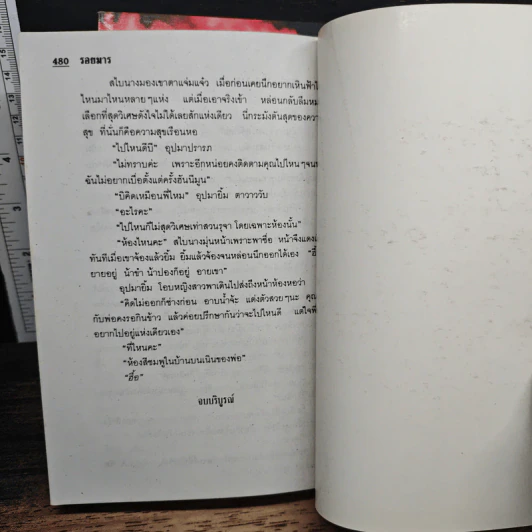 480 รอยมาร
สไบนางมองเขาตาแจ่มแจ๋ว เมื่อก่อนเคยนึกอยากเหินฟ้าไ
ไหนมาไหนหลายๆแห่ง แต่เมื่อเอาจริงเข้า หล่อนกลับลืมหม
เลือกที่สุดวิเศษดังใจไม่ได้เลยสักแห่งเดียว นึกระมังต้นสุดของควา
สุข ที่นั่นก็คือความสุขเรือนหอ
“ไปไหนดีบี” อุปมาปรารภ
“ไม่ทราบค่ะ เพราะอีกหน่อยคงติดตามคุณไปไหนๆจน
ฉันไม่อยากเบื่อตั้งแต่ครั้งฮันนีมูน”
“บีคิดเหมือนพี่ไหม” อุปมายิ้ม ตาวาววับ
“อะไรคะ”
“ไปไหนก็ไม่สุดวิเศษเท่าสวนรุจา โดยเฉพาะห้องนั้น”
“ห้องไหนคะ” สไบนางมุ่นหน้าเพราะพาซื่อ หน้าจึงแดงเ
ทันทีเมื่อเขาจ้องแล้วยิ้ม ยิ้มแล้วจ้องจนหล่อนนึกออกได้เอง “อื้
ยายอยู่ น้าขำ น้าปองก็อยู่ อายเขา”
อุปมายิ้ม โอบหญิงสาวพาเดินไปส่งถึงหน้าห้องหอว่า
“คิดไม่ออกก็ช่างก่อน อาบน้ำจ้ะ แต่งตัวสวยๆนะ คุณ
กับพ่อคงรอกินข้าว แล้วค่อยปรึกษากันว่าจะไปไหนดี แต่ใจพี
อยากไปอยู่แห่งเดียวเอง”
“ที่ไหนคะ”
“ห้องสีชมพูในบ้านบนเนินของพ่อ”
“อื้อ”
จบบริบูรณ์